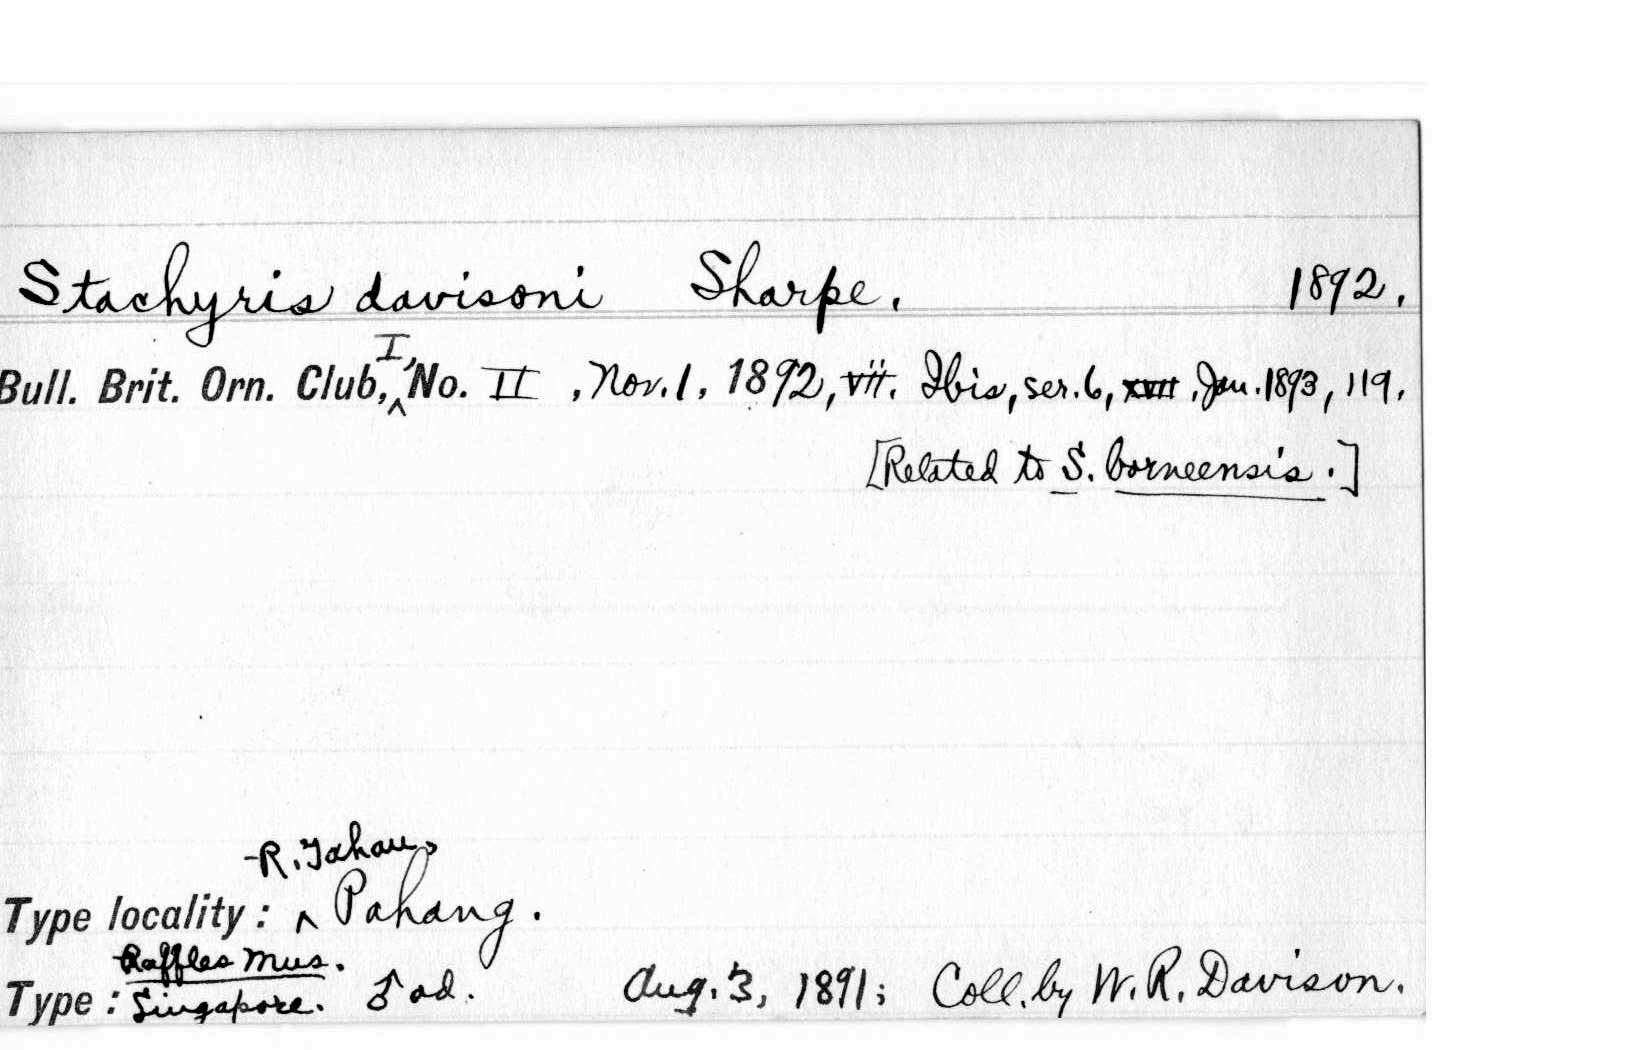 Stachyris davisoni Sharpe. 1892.
Bull. Brit. Orn. Club, I, No. II, Nov. 1, 1892, vii. Ibis, ser. 6, xvii, Jan. 1893, 119.
[Related to S. borneensis.]
R. Tahan,
Type locality: ^ Pahang.
Raffles Mus.
Type: Singapore. ♂ ad. Aug. 3, 1891; Coll. by W. R. Davison.